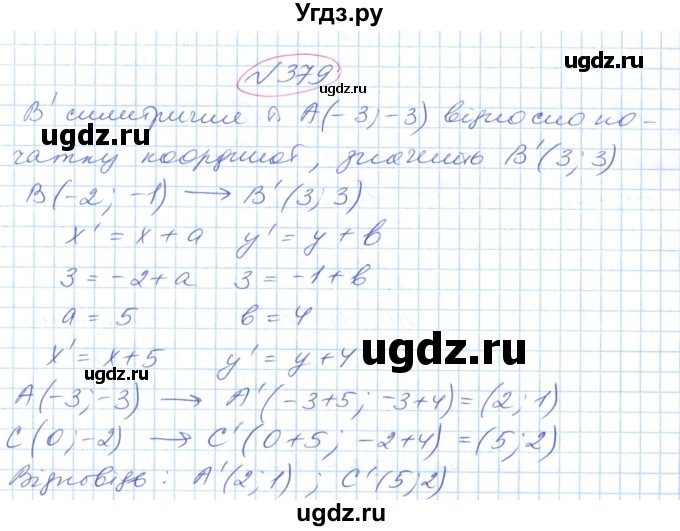 Угдз.ру
№379
B' симетричне т. A(-3;-3) відносно по-
чатку координат, значить B'(3;3)
B(-2; -1) → B'(3; 3)
x' = x + a   y' = y + b
3 = -2+a   3 = -1+b
a = 5   b = 4
x' = x+5   y' = y+4
A(-3;-3) → A'(-3+5; -3+4) = (2; 1)
C(0;-2) → C'(0+5; -2+4) = (5;2)
Відповідь: A'(2;1) ; C'(5;2)
ugdz.ru
ugdz.ru
ugdz.ru
ugdz.ru
ugdz.ru
ugdz.ru
ugdz.ru
ugdz.ru
ugdz.ru
ugdz.ru